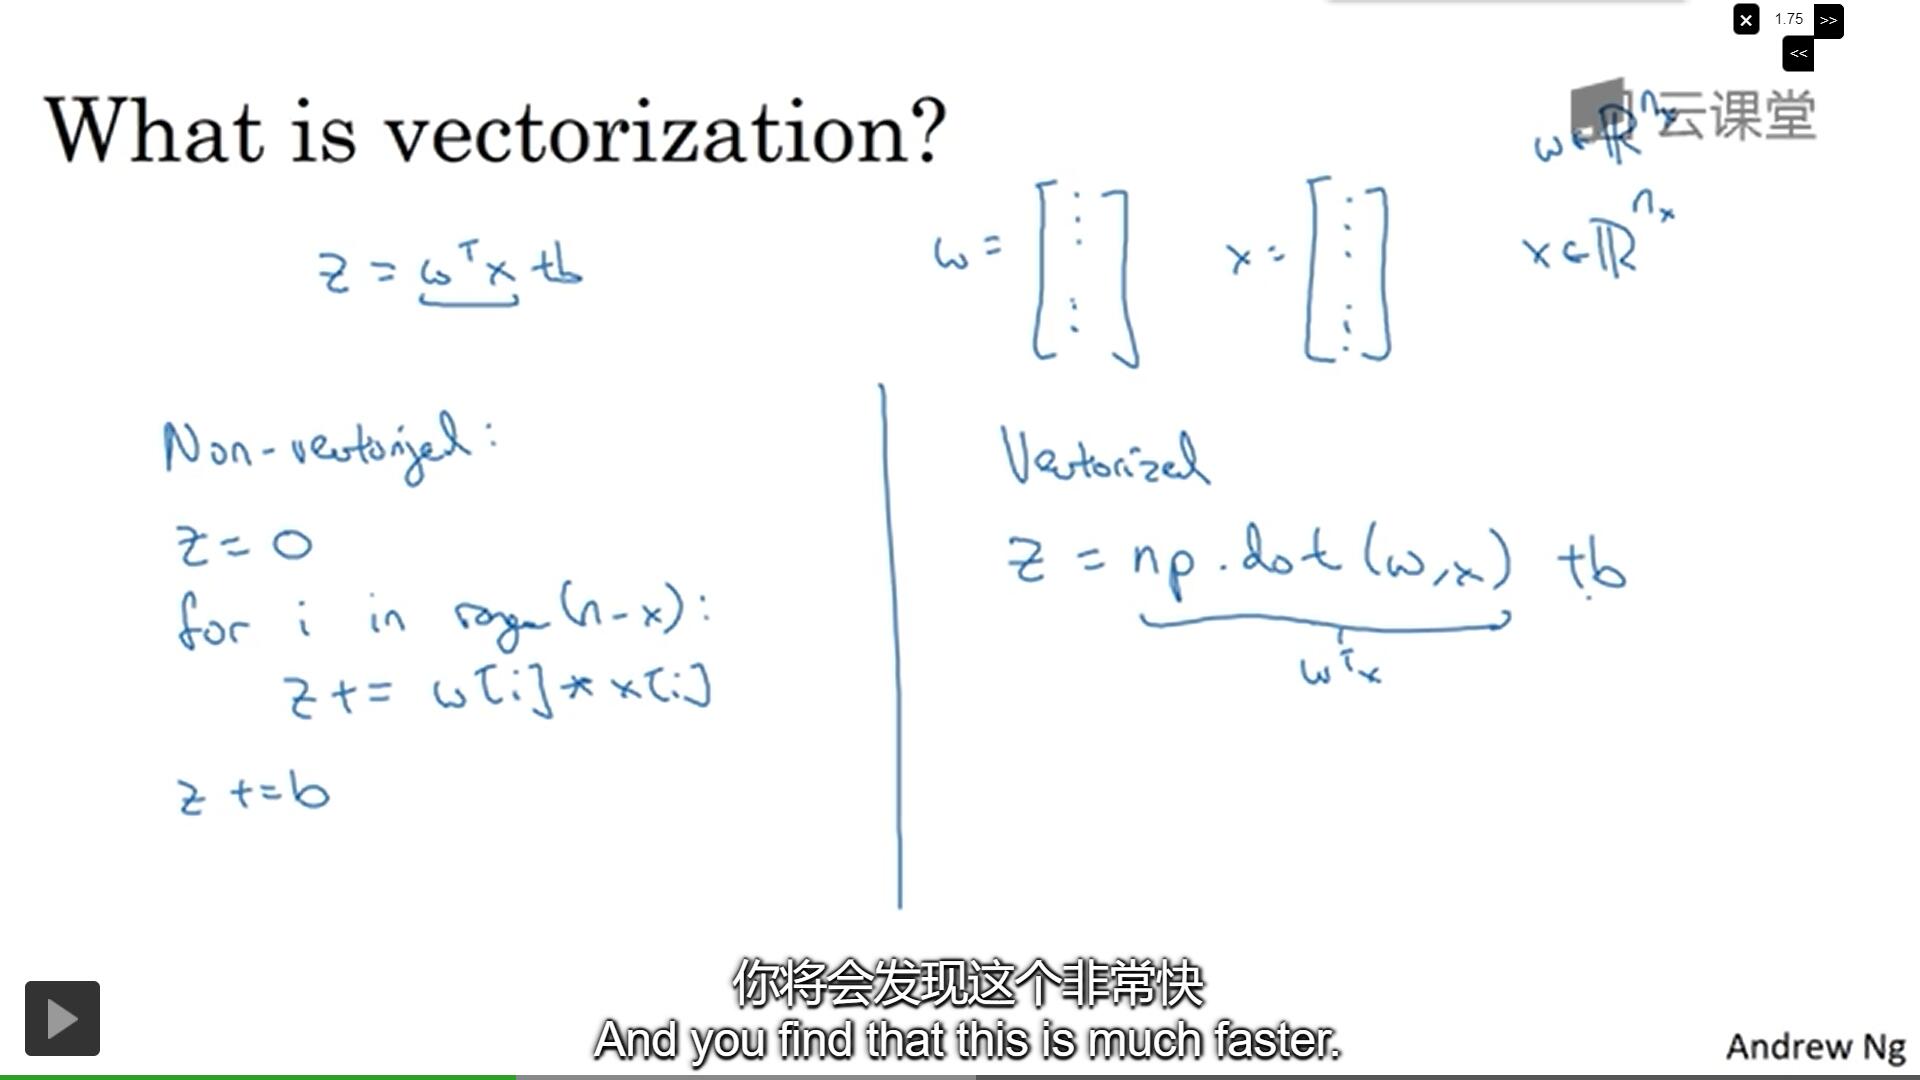 1.75 >>
<<
云课堂
What is vectorization?
z = wᵀx + b
w = [⋮ ⋮]
x = [⋮ ⋮]
w ∈ ℝⁿˣ
x ∈ ℝⁿˣ
Non-vectorized:
z = 0
for i in range(n-x):
z += w[i] * x[i]
z += b
Vectorized
z = np.dot(w,x) + b
wᵀx
你将会发现这个非常快
And you find that this is much faster.
Andrew Ng